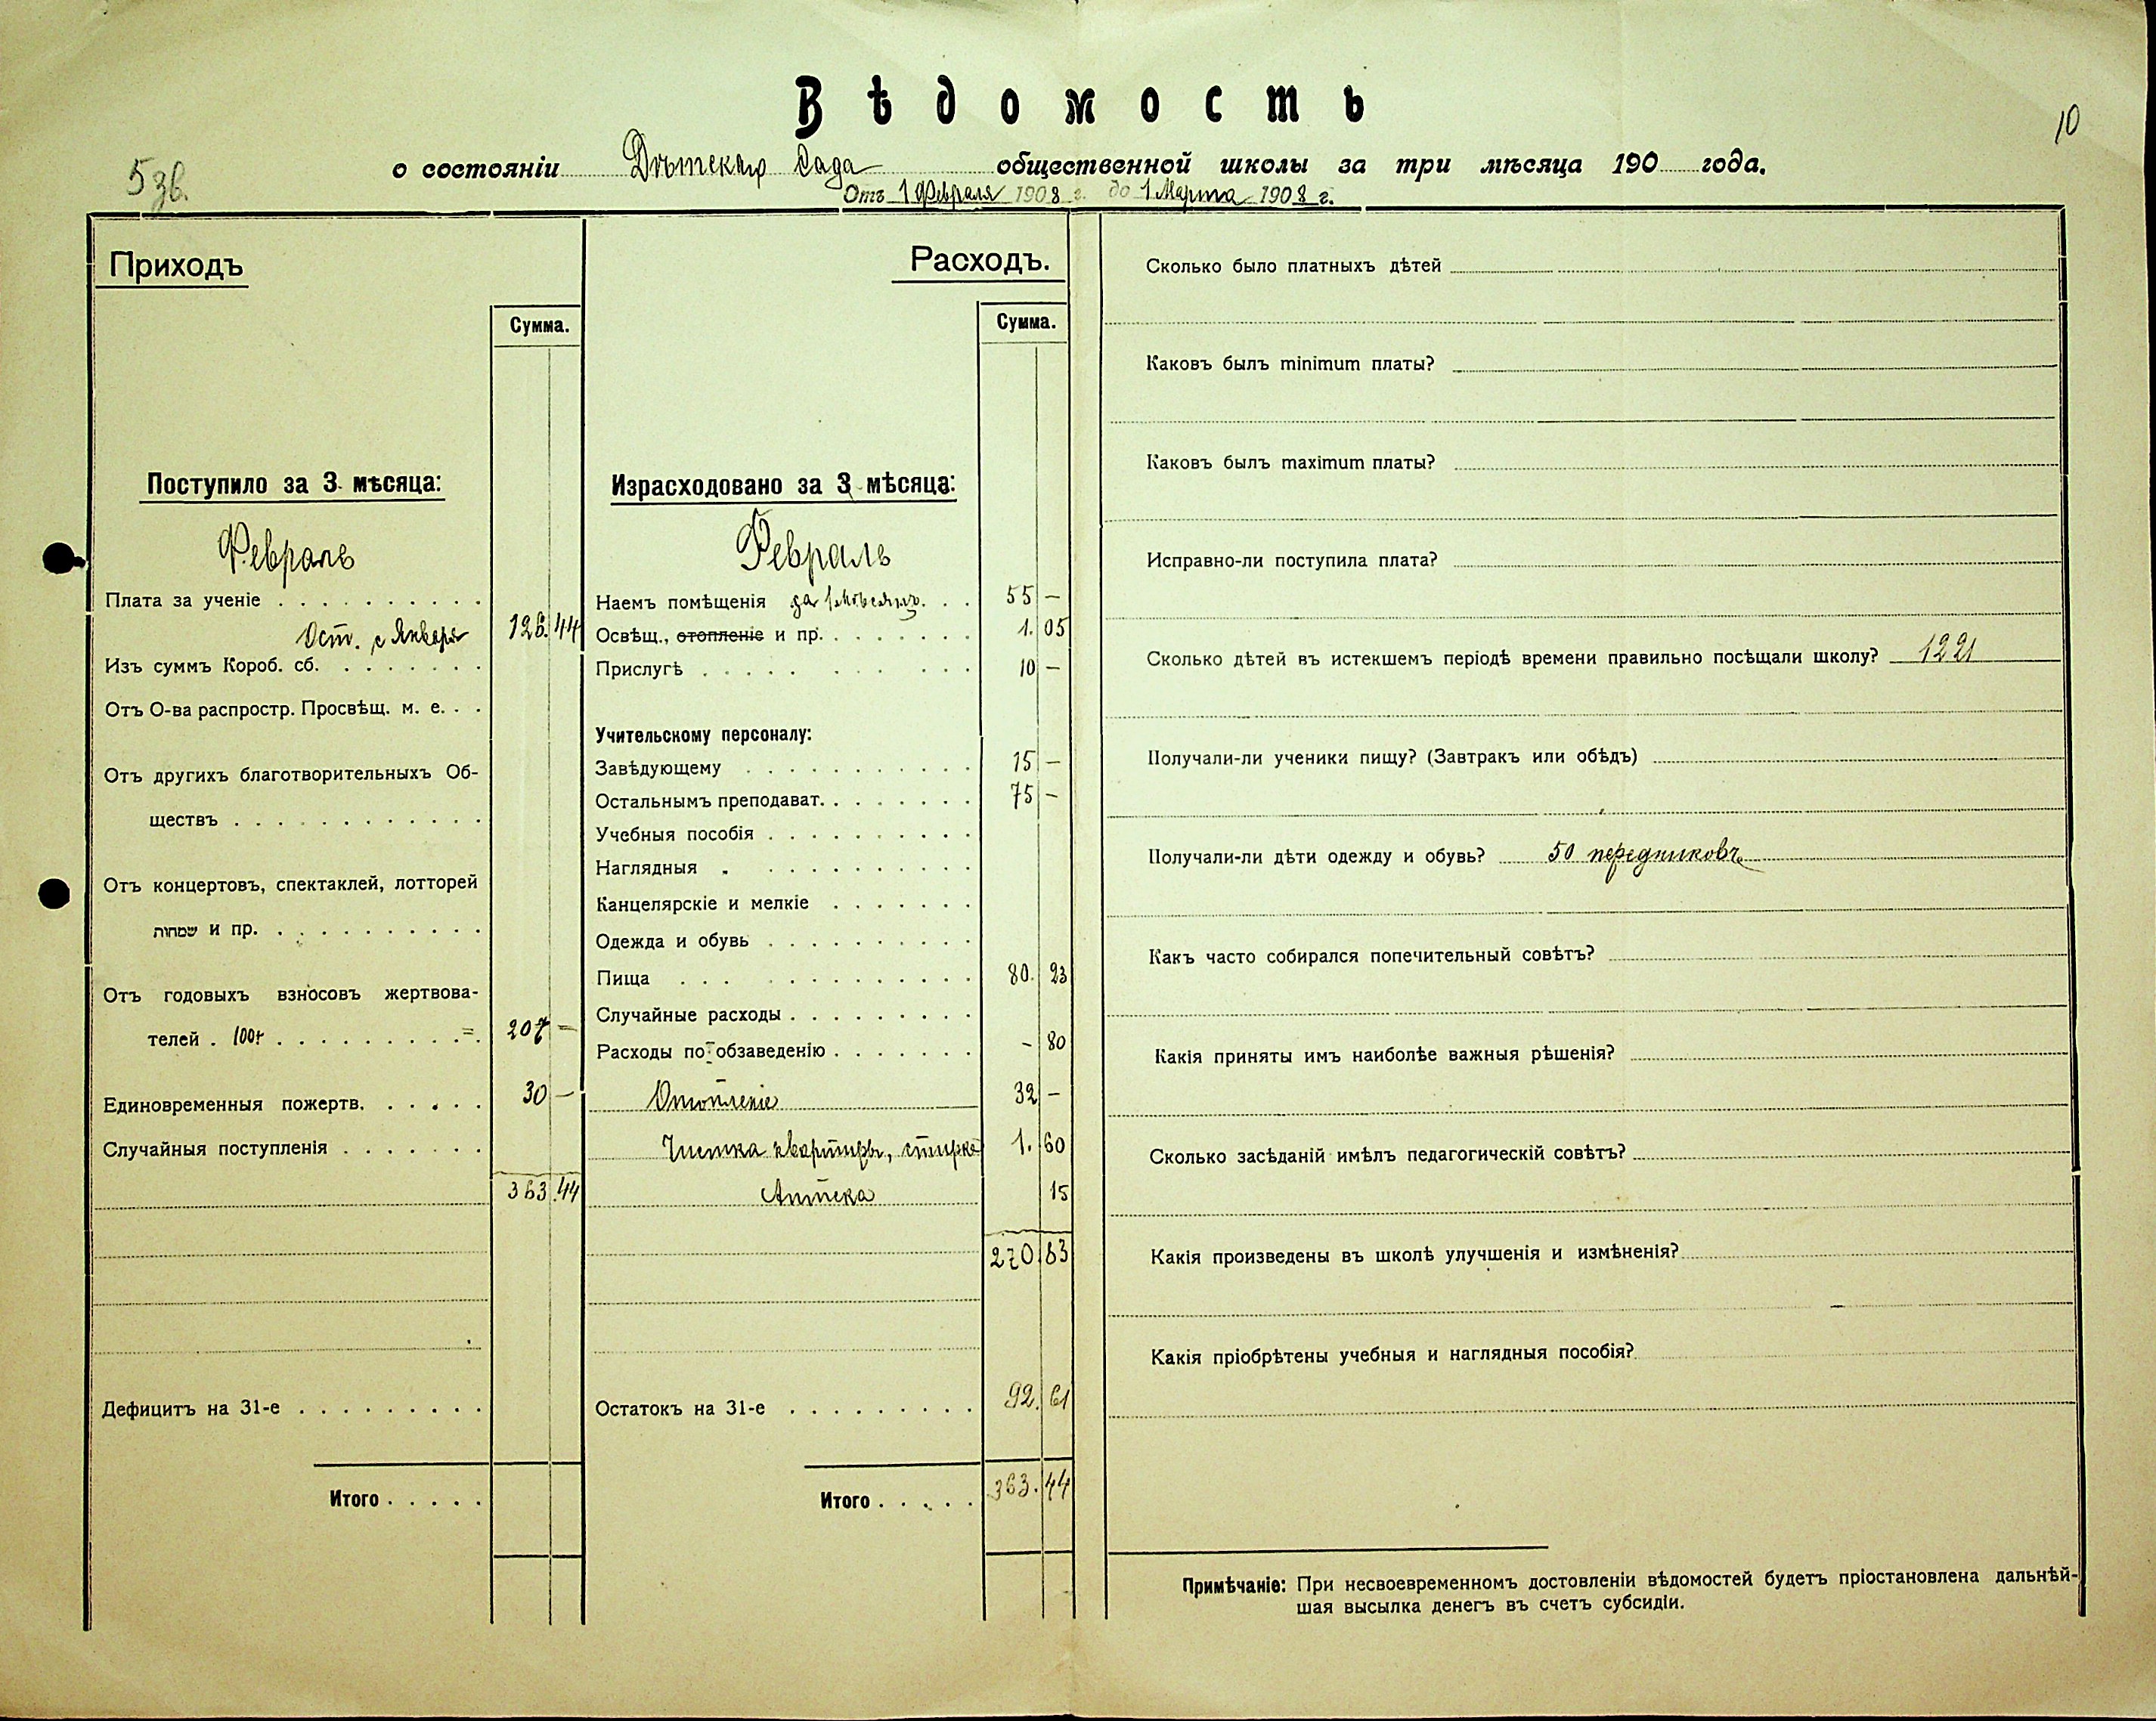 Вѣдомость
10
5 зв.
о состояніи Дѣтскаго Сада общественной школы за три мѣсяца 190 года.
Отъ 1 Февраля 1908 г. до 1 Марта 1908 г.
Приходъ
Сумма.
Поступило за 3 мѣсяца:
Февраль
Плата за ученіе . . . . . . . . . .
Ост. с Января 126. 44
Изъ суммъ Короб. сб. . . . . . . .
Отъ О-ва распростр. Просвѣщ. м. е. . .
Отъ другихъ благотворительныхъ Об-
ществъ . . . . . . . . . . . .
Отъ концертовъ, спектаклей, лотторей
שמחות и пр. . . . . . . . . . .
Отъ годовыхъ взносовъ жертвова-
телей . . . . . . . . . . = 207 —
Единовременныя пожертв. . . . . . 30 —
Случайныя поступленія . . . . . . .
363. 44
Дефицитъ на 31-е . . . . . . . . .
Итого . . . . .
Расходъ.
Сумма.
Израсходовано за 3 мѣсяца:
Февраль
Наемъ помѣщенія за 1 мѣсяцъ . . . 55 —
Освѣщ., отопленіе и пр. . . . . . . . 1. 05
Прислугѣ . . . . . . . . . . 10 —
Учительскому персоналу:
Завѣдующему . . . . . . . . . . . 15 —
Остальнымъ преподават. . . . . . . . 75 —
Учебныя пособія . . . . . . . . . .
Наглядныя „ . . . . . . . . . .
Канцелярскіе и мелкіе . . . . . . .
Одежда и обувь . . . . . . . . . .
Пища . . . . . . . . . . . . 80. 23
Случайные расходы . . . . . . . . .
Расходы по обзаведенію . . . . . . . - 80
Отопленіе 32 —
Чистка квартиры, стирка 1. 60
Аптека 15
270. 83
Остатокъ на 31-е . . . . . . . . . 92. 61
Итого . . . . . 363. 44
Сколько было платныхъ дѣтей
Каковъ былъ minimum платы?
Каковъ былъ maximum платы?
Исправно-ли поступила плата?
Сколько дѣтей въ истекшемъ періодѣ времени правильно посѣщали школу? 1221
Получали-ли ученики пищу? (Завтракъ или обѣдъ)
Получали-ли дѣти одежду и обувь? 50 передниковъ
Какъ часто собирался попечительный совѣтъ?
Какія приняты имъ наиболѣе важныя рѣшенія?
Сколько засѣданій имѣлъ педагогическій совѣтъ?
Какія произведены въ школѣ улучшенія и измѣненія?
Какія пріобрѣтены учебныя и наглядныя пособія?
Примѣчаніе: При несвоевременномъ достовленіи вѣдомостей будетъ пріостановлена дальнѣй-
шая высылка денегъ въ счетъ субсидіи.